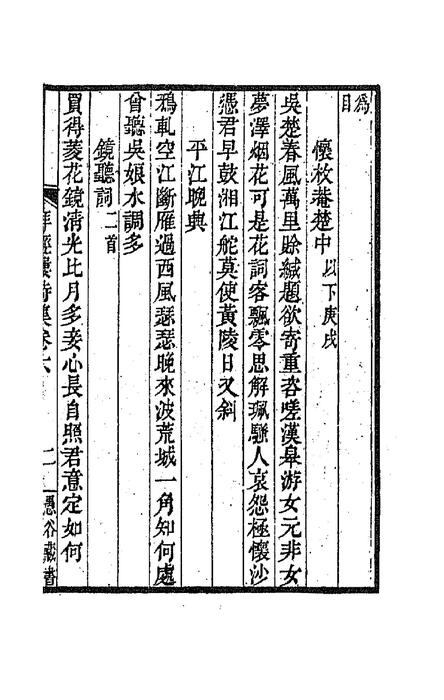 爲
目
懷枚菴楚中 以下庚戌
吳楚春風萬里賒緘題欲寄重咨嗟漢皋游女元非女
夢澤烟花可是花詞客飄零思解珮騷人哀怨極懷沙
憑君早鼓湘江舵莫使黃陵日又斜
平江晚典
鴉軋空江斷雁過西風瑟瑟晚來波荒城一角知何處
曾聽吳娘水調多
鏡聽詞二首
買得菱花鏡清光比月多妾心長自照君意定如何
拜經樓詩集卷六 二 愚谷叢書